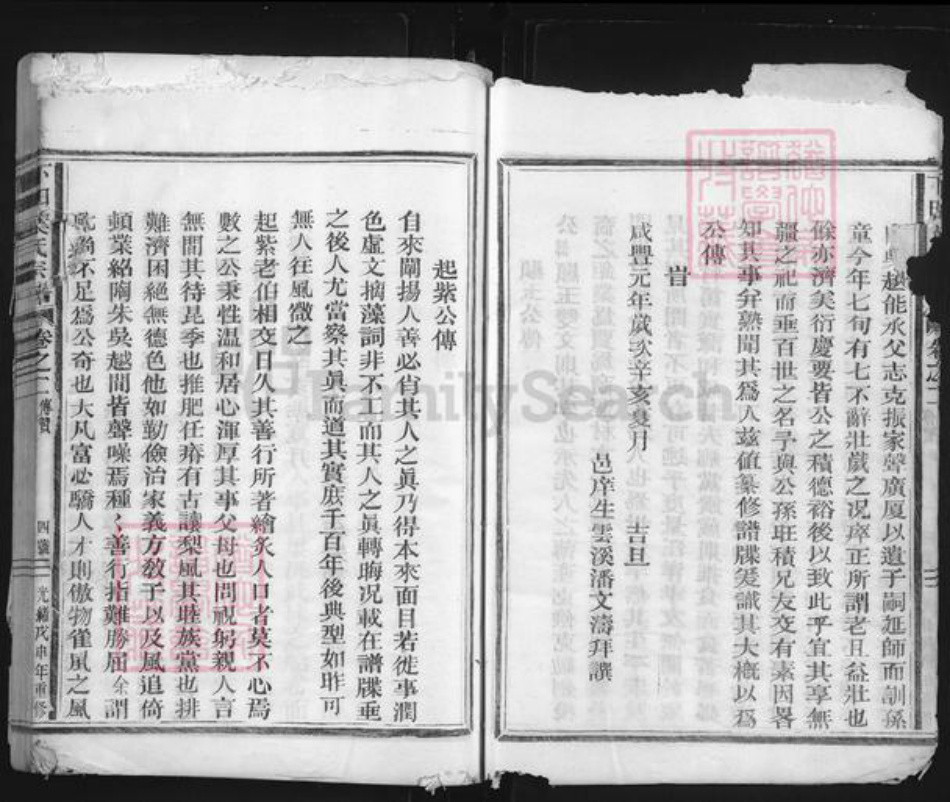 越能承父志克振家聲廣厦以遺子嗣延師而訓孫
童今年七旬有七不辭壯歲之况瘁正所謂老且益壯也
餘亦濟美衍慶要皆公之積德裕後以致此乎宜其享無
疆之祀而垂百世之名予與公孫玨積兄友交有素因畧
知其事弁熟聞其爲人兹值纂修譜牒爰識其大槪以爲
公傳
旹
咸豐元年歲次辛亥夏月 吉旦
邑庠生雲溪潘文濤拜譔
起紫公傳
自來闡揚人善必肖其人之眞乃得本來面目若徙事潤
色虛文摛藻詞非不工而其人之眞轉晦况載在譜牒垂
之後人尤當察其眞而遒其實庶千百年後典型如昨可
無人往風微之
起紫老伯相交日久其善行所著繪炙人口者莫不心焉
數之公秉性溫和居心渾厚其事父母也問視躬親人言
無間其待昆季也推肥任瘠有古讓梨風其睦族黨也排
難濟困絕無德色他如勤儉治家義方敎子以及風追倚
頓業紹陶朱吳越間皆聲噪焉種〻善行指難勝屈余謂
不足爲公奇也大凡富必驕人才則傲物雀鼡之風
氏宗譜 卷之一 傳贊 四號 光緒戊申年重修
FamilySearch